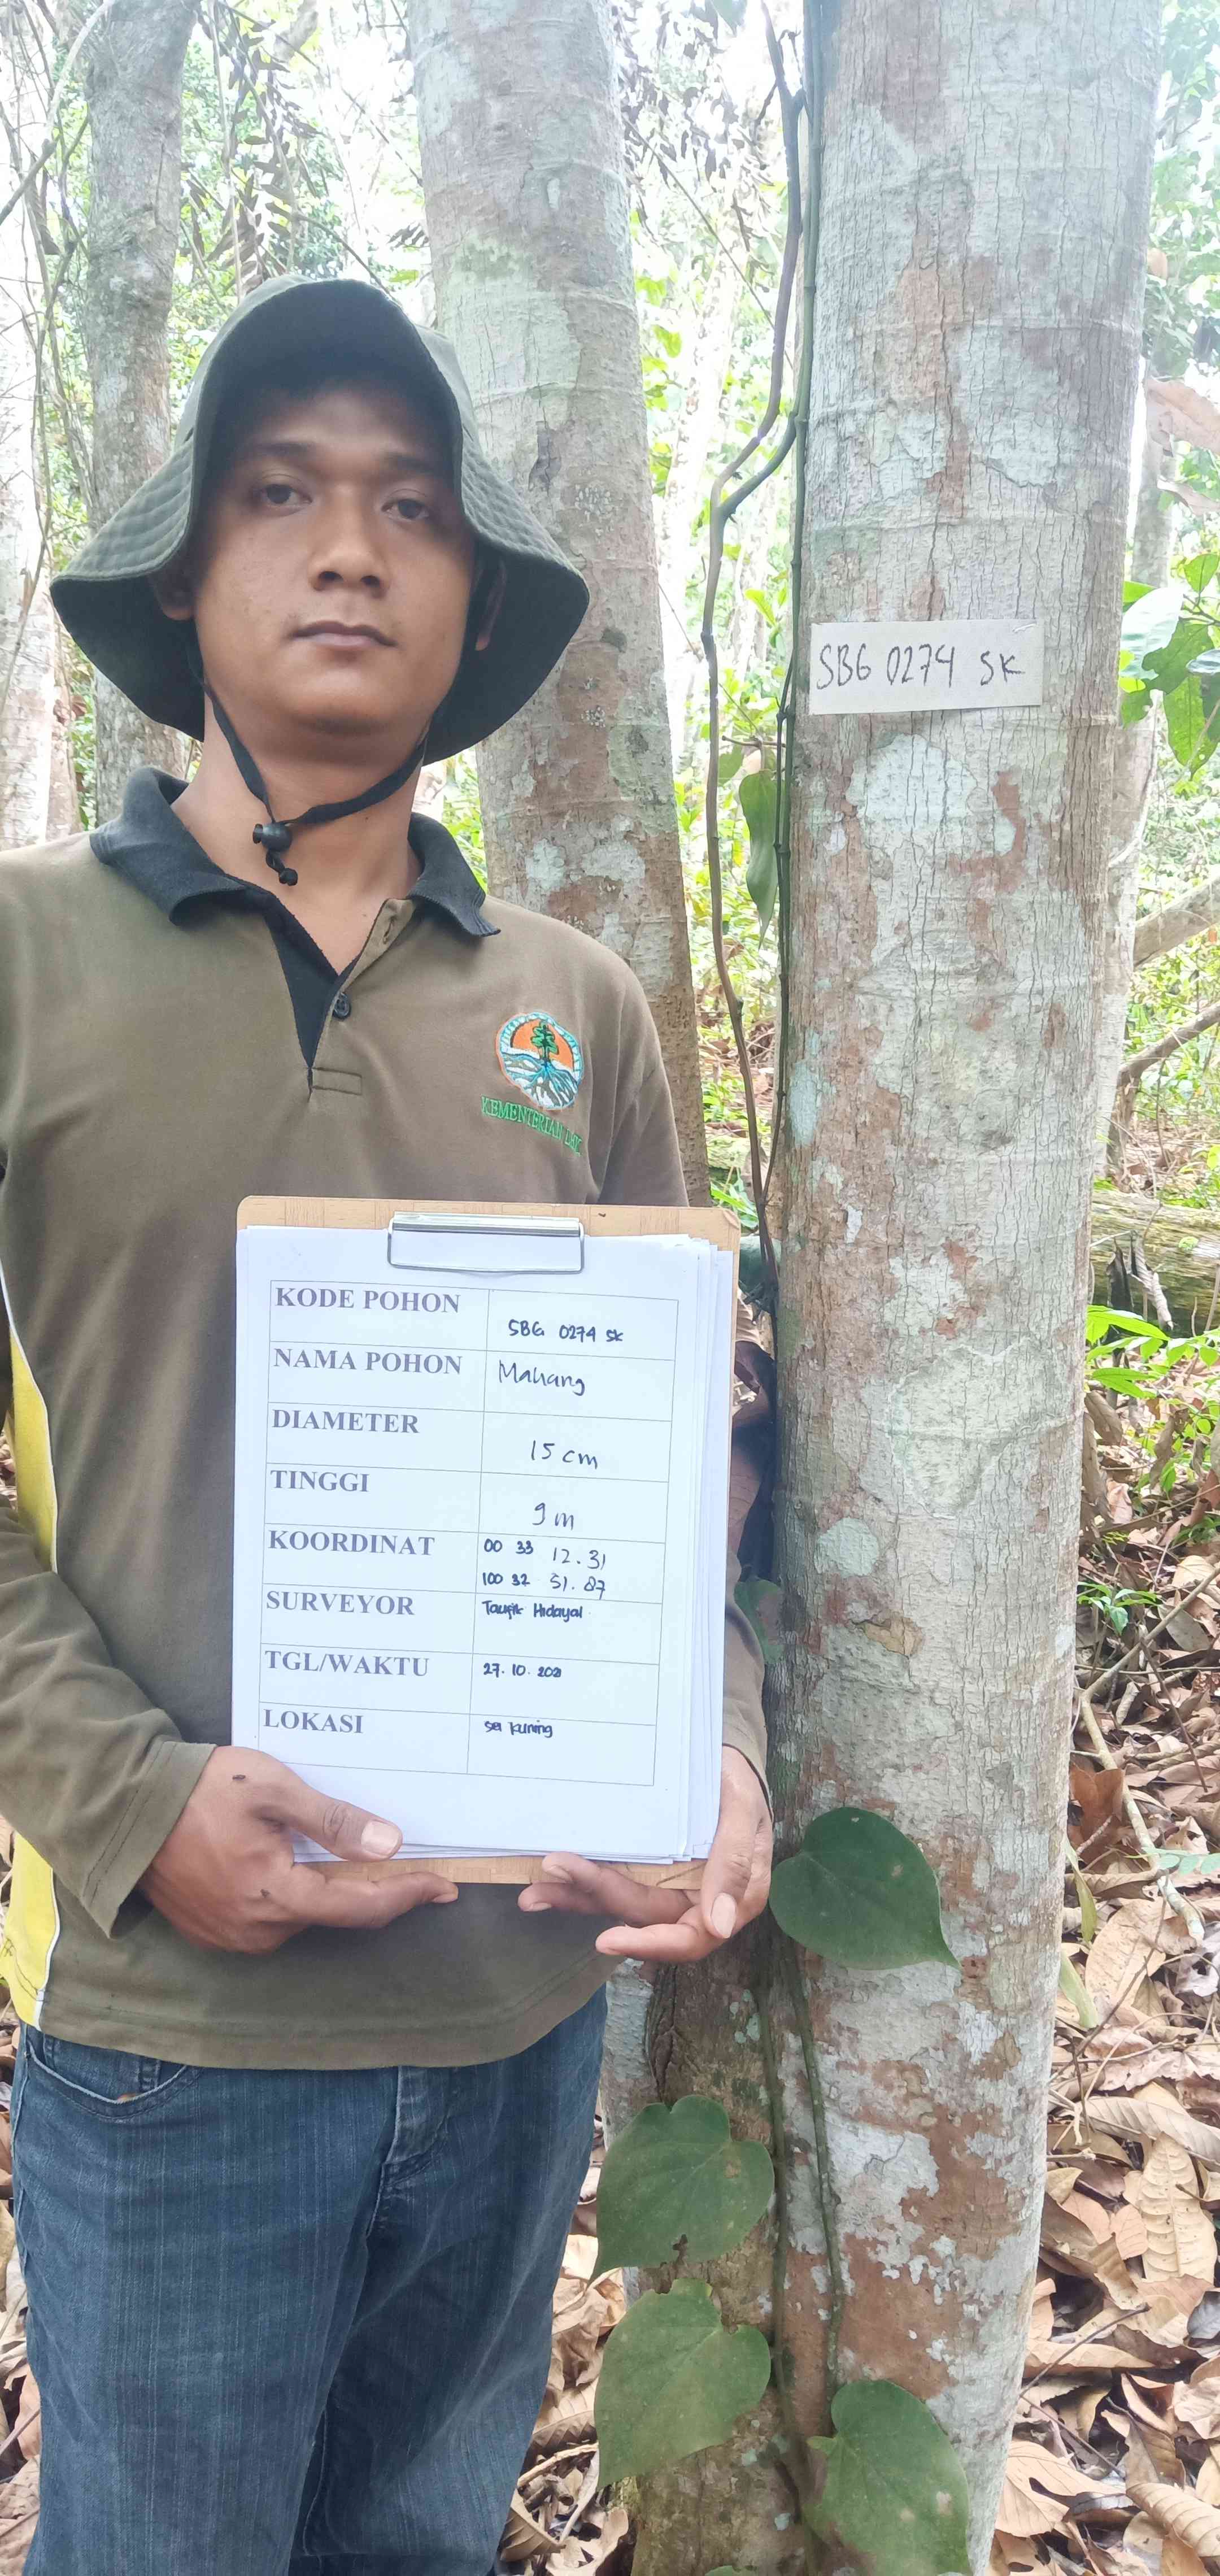 SBG 0274 SK
KEMENTERIAN LHK
KODE POHON SBG 0274 SK
NAMA POHON Mahang
DIAMETER 15 cm
TINGGI 9 m
KOORDINAT 00 33 12.31
100 32 51.87
SURVEYOR Taufik Hidayat
TGL/WAKTU 27.10.2021
LOKASI sei kuning